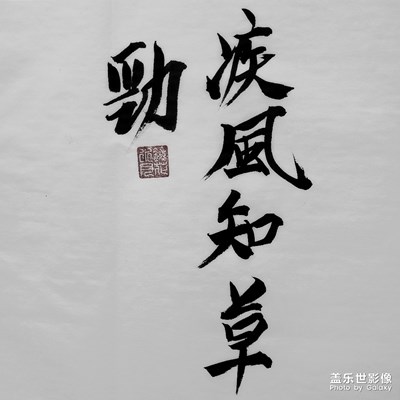 疾風知草
勁
盖乐世影像
Photo by Galaxy